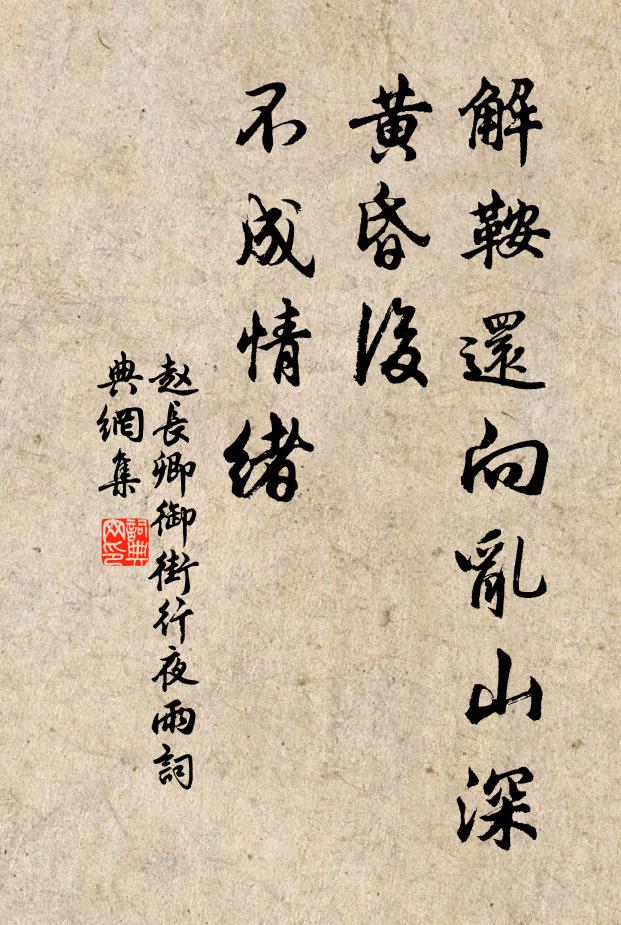 解鞍還向亂山深
黃昏後
不成情緒
赵長卿御街行夜雨詞
典網集
詞典网印